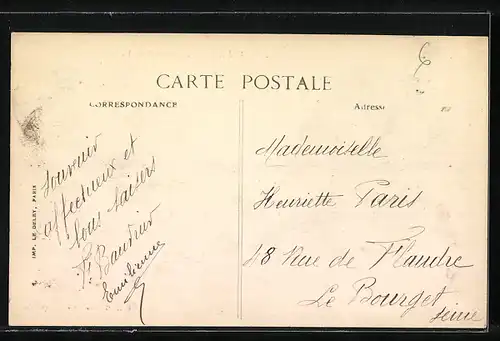 6
CARTE POSTALE
CORRESPONDANCE
Adresse
souvenir
affectueux et
bons baisers
Emilienne
IMP. LE DELEY, PARIS
Mademoiselle
Henriette Paris
48 Rue de Flandre
Le Bourget
Seine